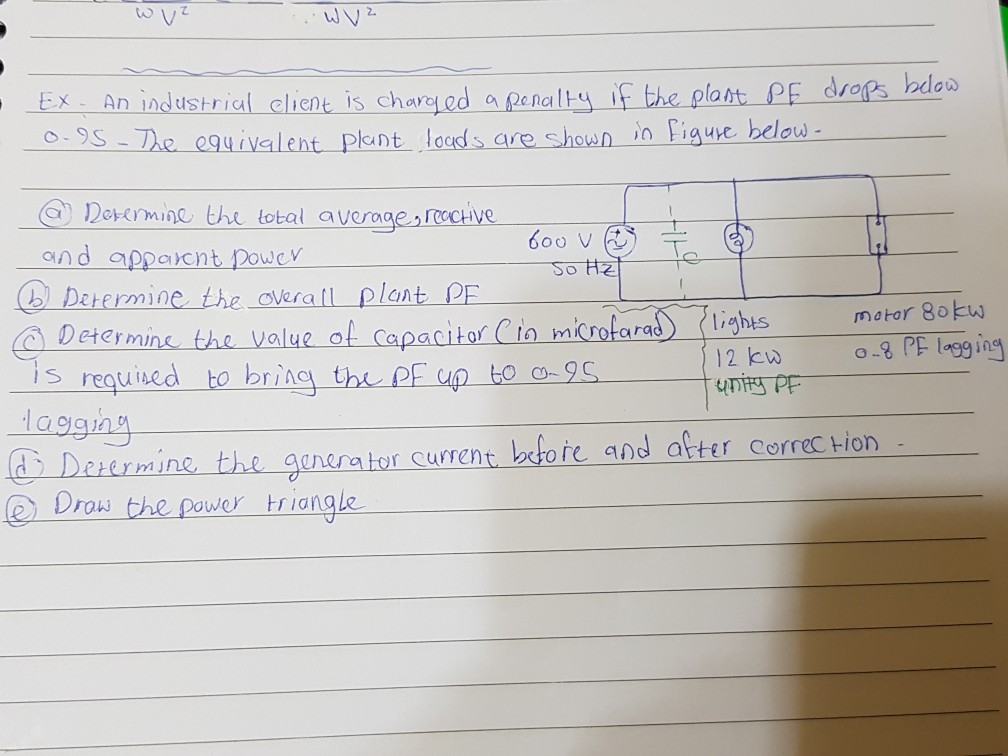 WV² WV²
Ex - An industrial client is charged a penalty if the plant PF drops below
0.95 - The equivalent plant loads are shown in Figure below -
(a) Determine the total average, reactive
and apparent power
600 V
50 Hz
C
(b) Determine the overall plant PF
(c) Determine the value of capacitor (in microfarad)
is required to bring the PF up to 0.95
lagging
lights
12 kw
unity PF
motor 80 kw
0.8 PF lagging
(d) Determine the generator current before and after correction -
(e) Draw the power triangle